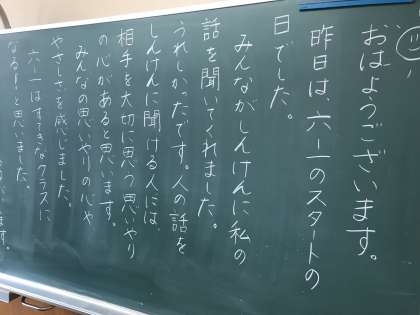 おはようございます。
昨日は、六-一のスタートの
日でした。
みんながしんけんに私の
話を聞いてくれました。
うれしかったです。人の話を
しんけんに聞ける人には、
相手を大切に思う思いやり
の心があると思います。
みんなの思いやりの心や
やさしさを感じました。
六-一はすてきなクラスに
なる!と思いました。
ます。